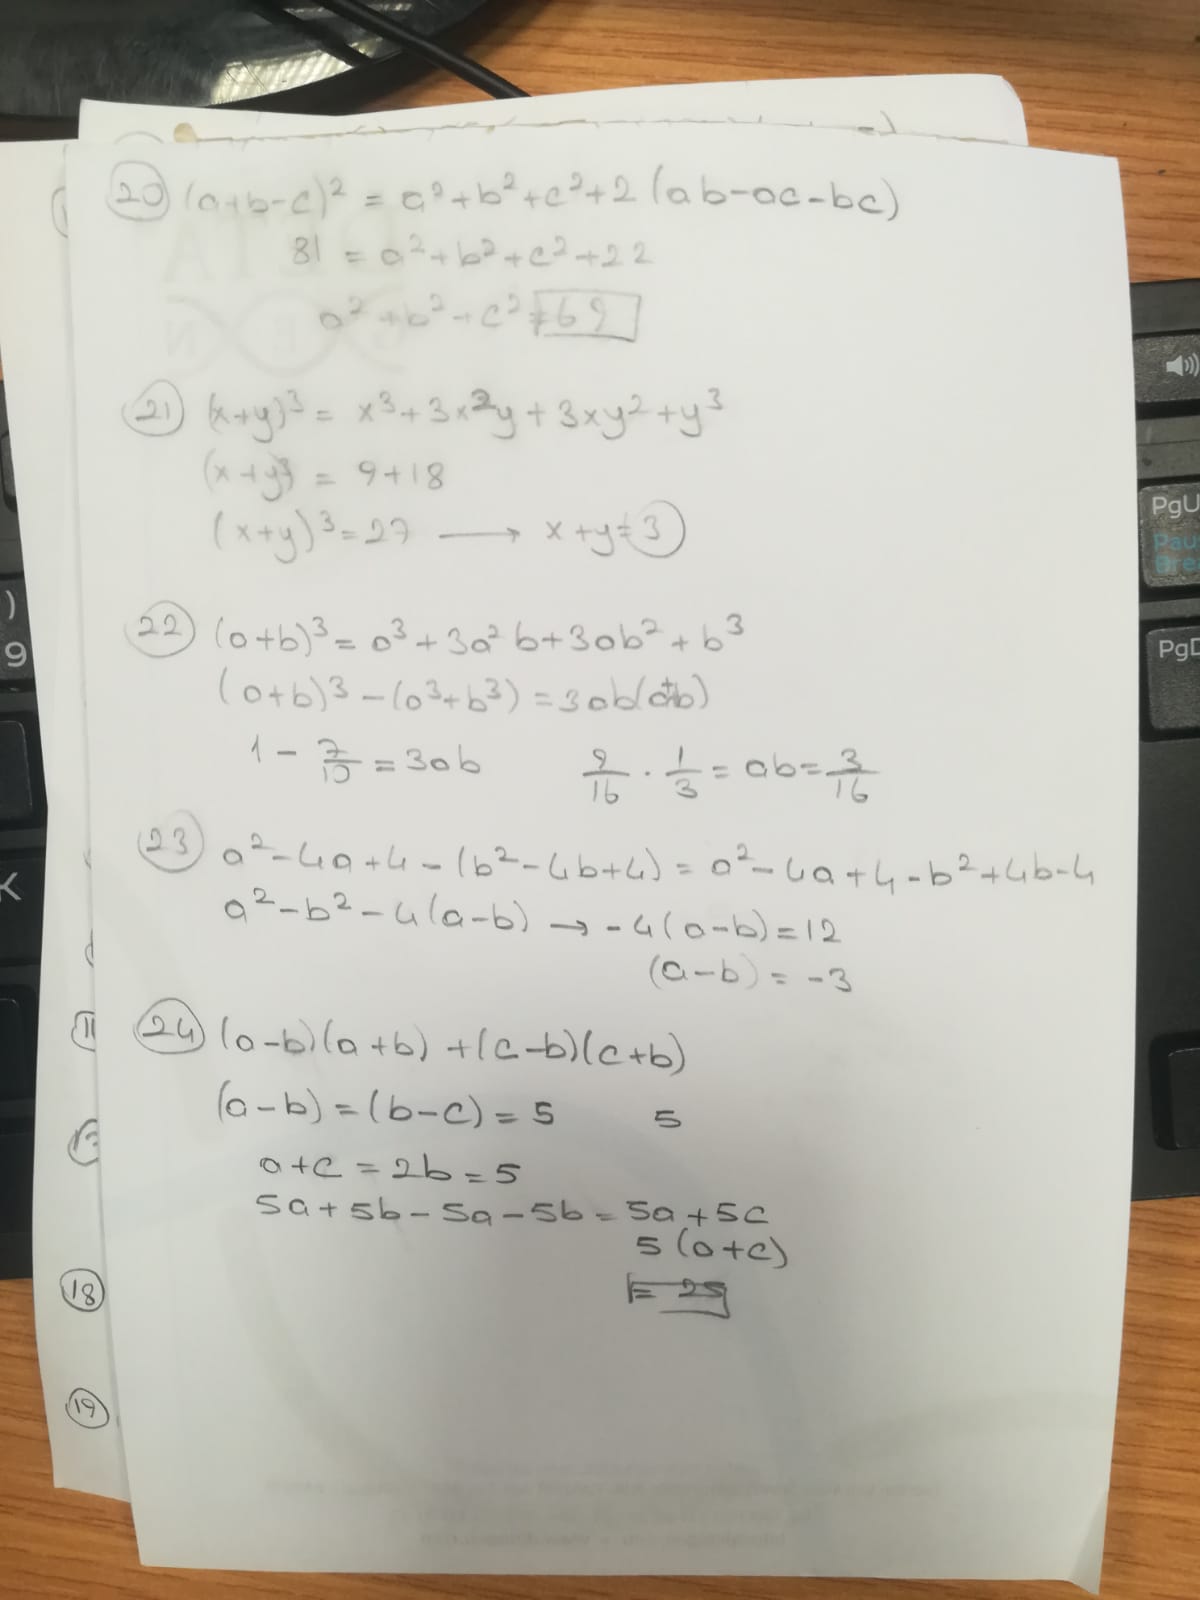 20 (a+b-c)² = a²+b²+c²+2(ab-ac-bc)
81 = a²+b²+c²+22
a²+b²+c² = 69
21 (x+y)³ = x³+3x²y+3xy²+y³
(x+y)³ = 9+18
(x+y)³=27 → x+y=3
22 (a+b)³ = a³+3a²b+3ab²+b³
(a+b)³-(a³+b³)=3ab(a+b)
1 - 7/10 = 3ab 9/16 · 1/3 = ab = 3/16
23 a²-4a+4-(b²-4b+4) = a²-4a+4-b²+4b-4
a²-b²-4(a-b) → -4(a-b)=12
(a-b) = -3
24 (a-b)(a+b)+(c-b)(c+b)
(a-b)=(b-c)=5 5
a+c = 2b = 5
5a+5b-5a-5b = 5a+5c
5(a+c)
= 25
18
19
PgU
Pau
Brea
PgD
)
9
K